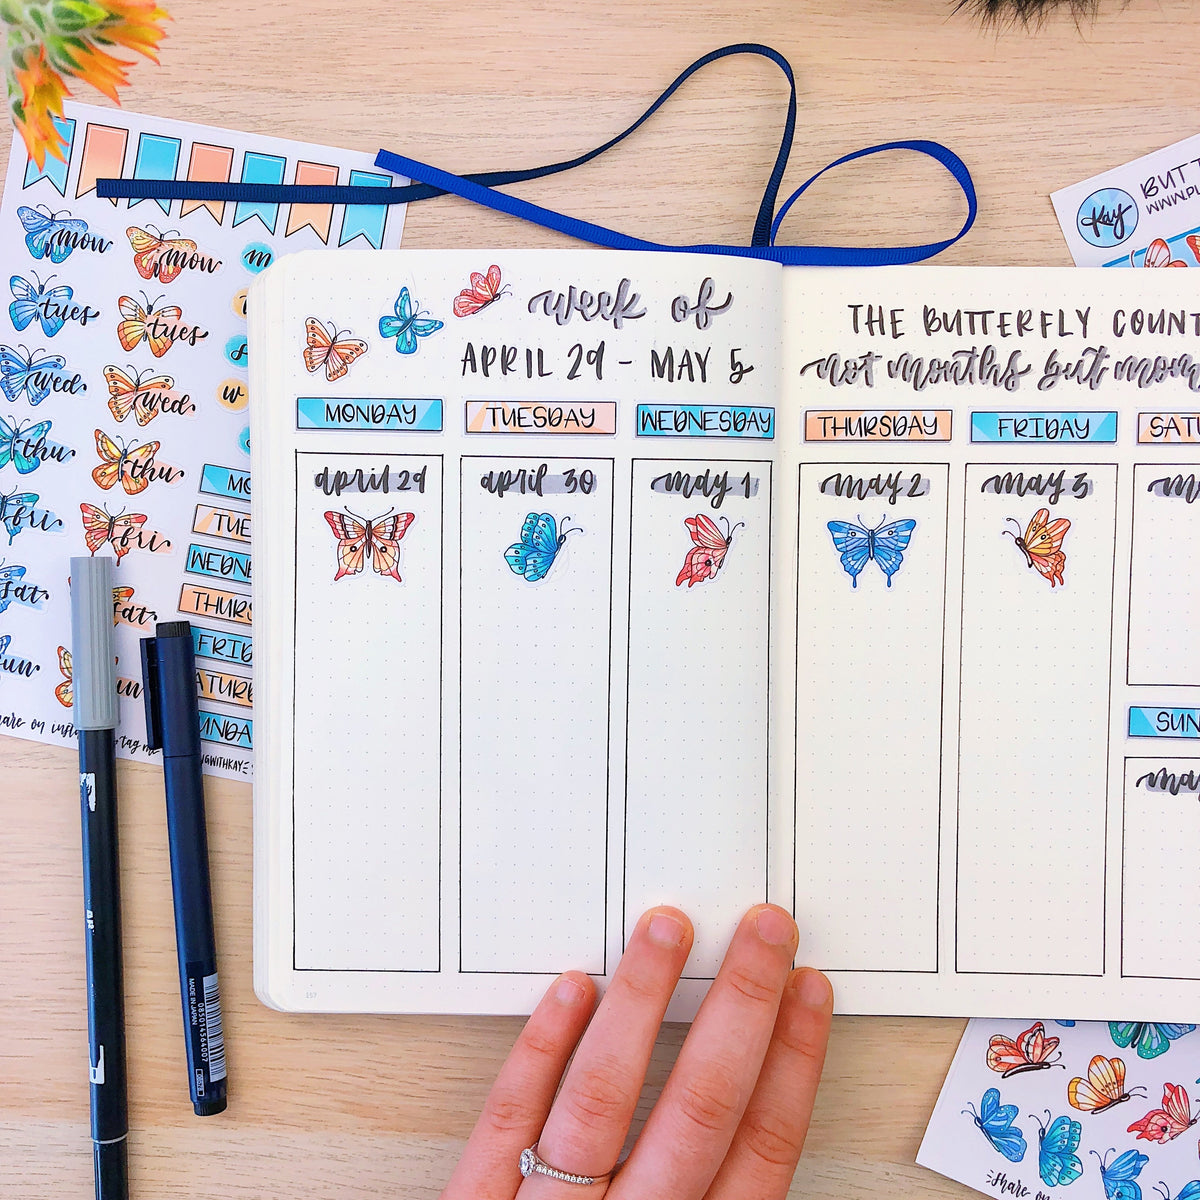 week of
APRIL 29 - MAY 5
THE BUTTERFLY COUNT
not months but mom
MONDAY
TUESDAY
WEDNESDAY
THURSDAY
FRIDAY
SATU
april 29
april 30
may 1
may 2
may 3
SUN
may
157
mon
mon
m
tues
tues
wed
wed
w
thu
thu
fri
fri
sat
sat
sun
un
MO
TUE
WEDNE
THURS
FRID
ATURD
UNDA
hare on inst
tag me
NGWITHKAY
MADE IN JAPAN
085014564007
Kay
BUTT
WWW.PL
share on